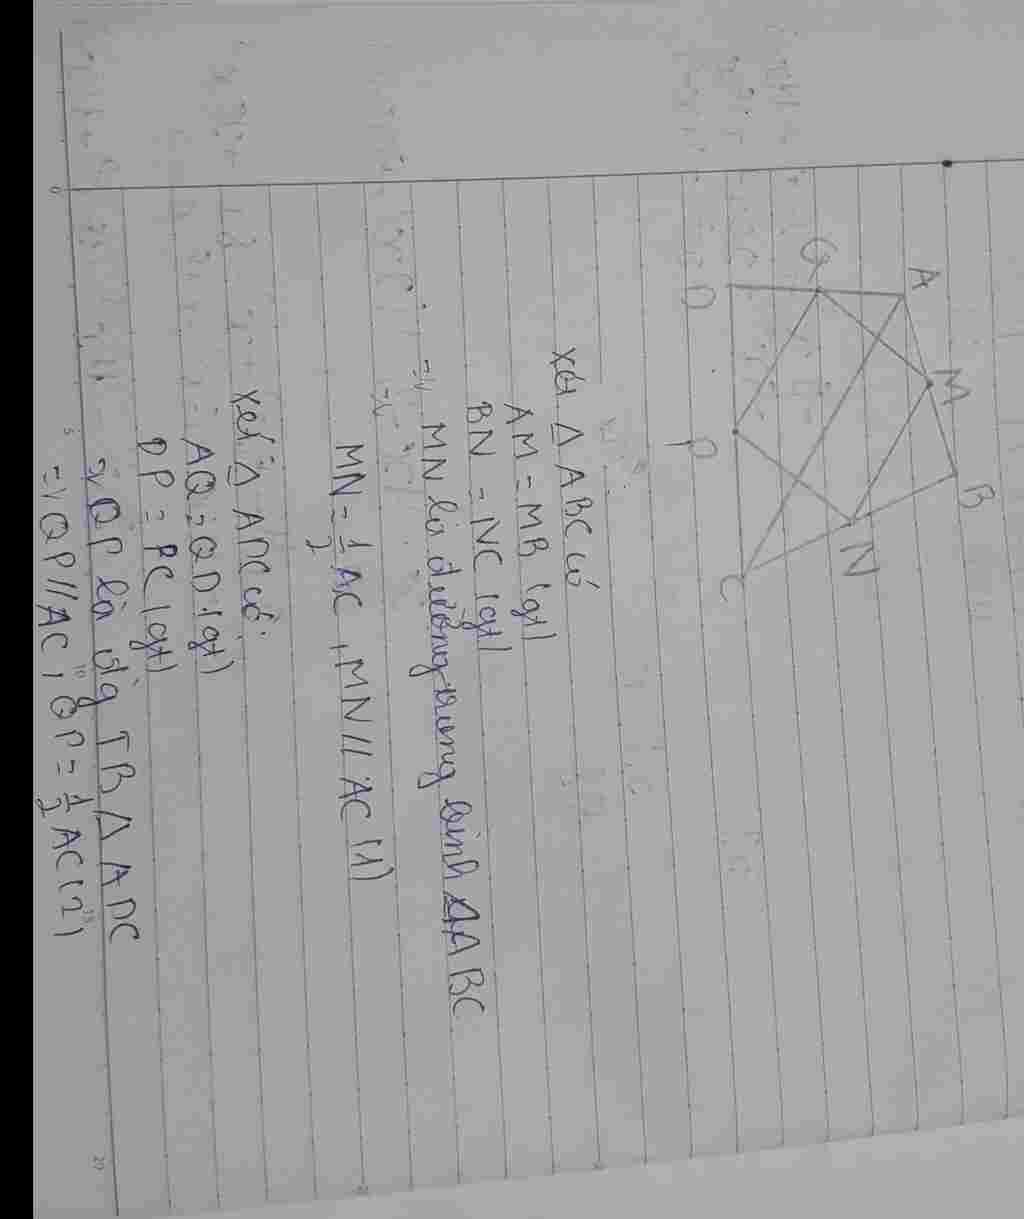 A
M
B
Q
N
D
P
C
xét Δ ABC có
AM = MB (gt)
BN = NC (gt)
=> MN là đường trung bình ΔABC
MN = 1/2 AC , MN // AC (1)
xét Δ ADC có:
AQ = QD (gt)
DP = PC (gt)
=> QP là đg TB Δ ADC
=> QP // AC , QP = 1/2 AC (2)